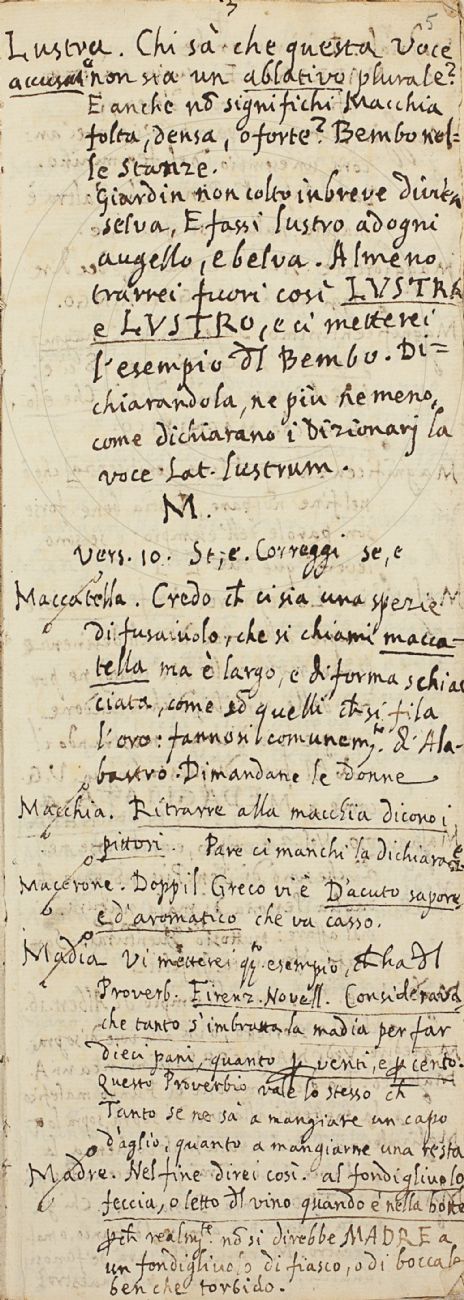 3
5
Lustra. Chi sà che questa Voce
accusat.º non sia un ablativo plurale?
E anche nõ significhi Macchia
folta, densa, o forte? Bembo nel=
le Stanze.
Giardin non colto in breve divien
selva, E fassi lustro ad ogni
augello, e belva. Almeno
trarrei fuori così LVSTRA
e LVSTRO, e ci metterei
l'esempio dl Bembo. Di=
chiarandola, ne più ne meno,
come dichiarano i Dizionarj la
voce Lat. lustrum.
M.
Vers. 10. St; e. Correggi se, e
Maccatella. Credo ch ci sia una spezie
di fusaiuolo, che si chiami macca-
tella ma è largo, e di forma schiac
ciata, come sõ quelli ch si fila
l'oro: fannosi comunemte. d'Ala-
bastro. Dimandane le Donne
Macchia. Ritrarre alla macchia dicono i
pittori. Pare ci manchi la dichiaraze
Macerone. Dopp il Greco vi è D'acuto sapore
e d'aromatico che va casso.
Madia Vi metterei qto esempio, ch ha dl
Proverb. Firenz. Novell. Considerava
che tanto s'imbratta la madia per far
dieci pani, quanto p venti, e p cento.
Questo Proverbio vale lo stesso ch
Tanto se ne sa a mangiare un capo
d'aglio, quanto a mangiarne una resta
Madre. Nel fine direi così. al fondigliuolo
feccia, o letto dl vino quando è nella botte
pch realmte nõ si direbbe MADRE a
un fondigliuolo di fiasco, o di boccale
ben che torbido.